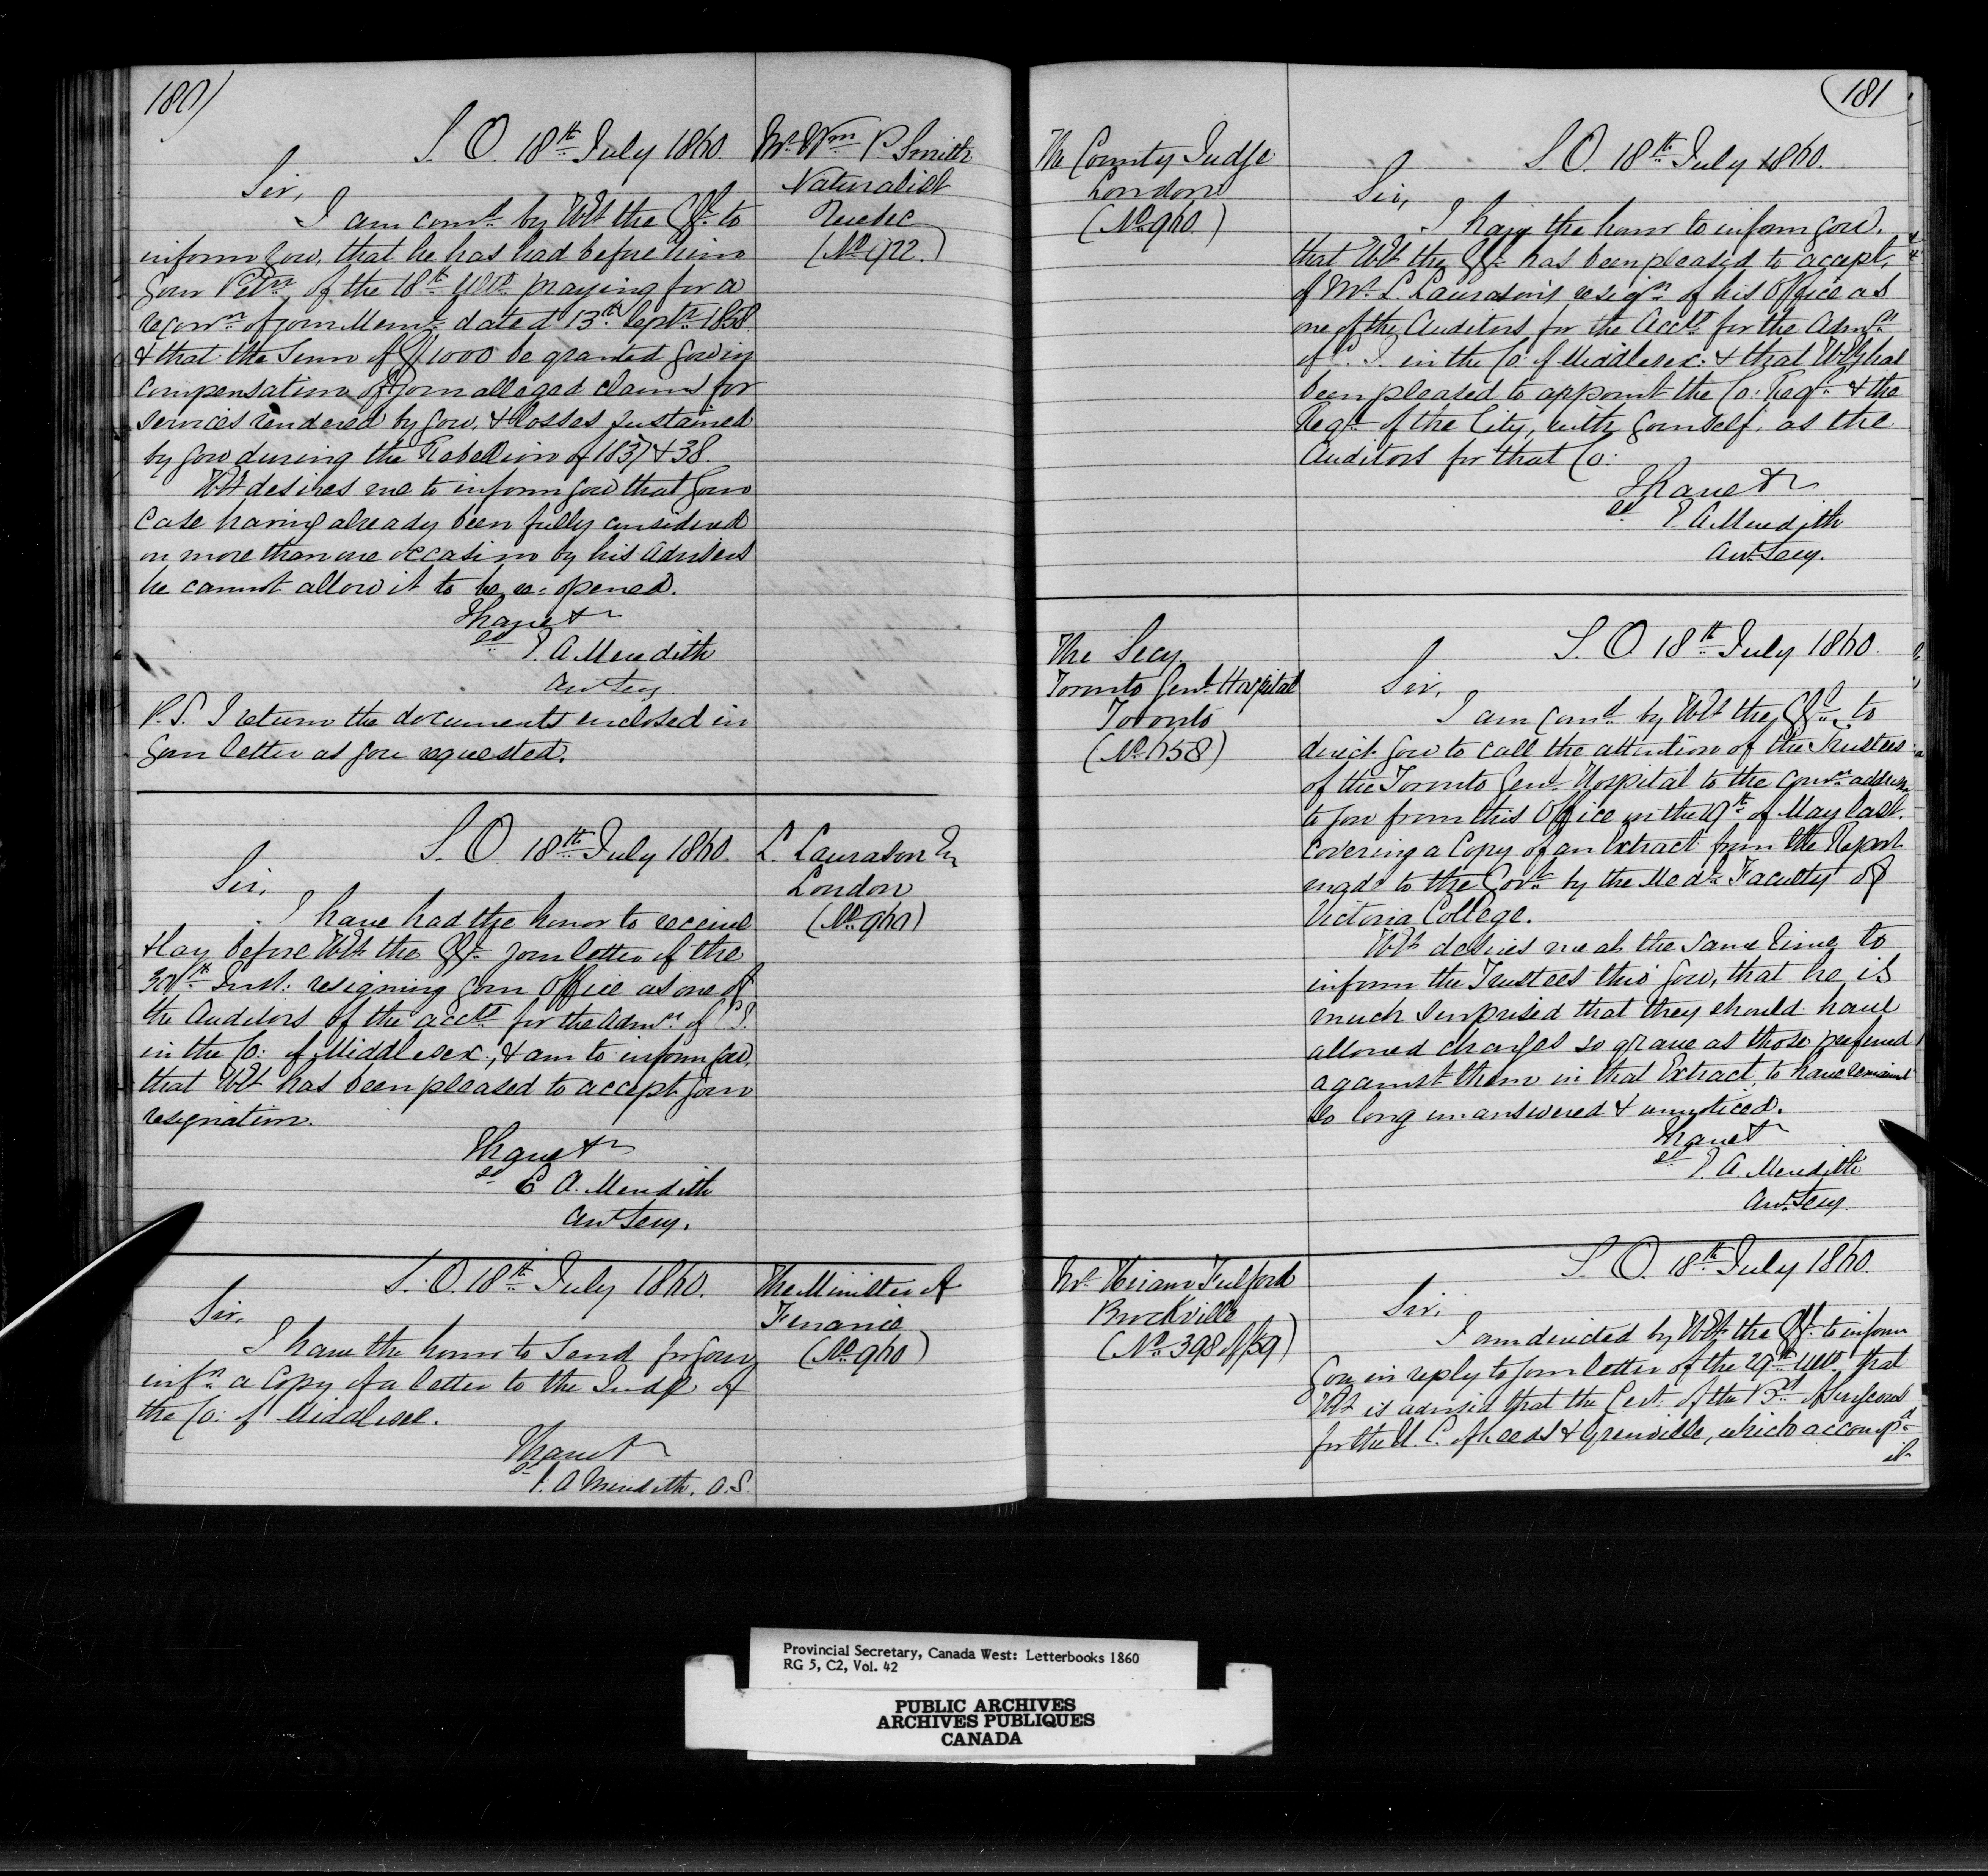 180)
S. O. 18th July 1860.
Mr. Wm P. Smith
Naturalist
Quebec
(No. 922.)
Sir,
I am comd by HE the GG to
inform you, that he has had before him
your Petn of the 18th Ulto praying for a
reconn of your Meml dated 13th Septr 1858.
& that the Sum of £1000 be granted you in
compensation of your alleged claims for
services rendered by you, & losses sustained
by you during the Rebellion of 1837 & 38.
HE desires me to inform you that your
case having already been fully considered
on more than one occasion by his advisers
he cannot allow it to be re-opened.
I have &c
sd E. A. Meredith
Asst Secy.
P.S. I return the documents enclosed in
your letter as you requested.
S. O. 18th July 1860.
L. Lawrason Esq
London
(No. 960)
Sir,
I have had the honor to receive
& lay before HE the GG your letter of the
30th Inst: resigning your Office as one of
the Auditors of the accts for the Admn of C J.
in the Co: of Middlesex; & am to inform you,
that HE has been pleased to accept your
resignation.
I have &c
sd E A. Meredith
Asst Secy.
S. O. 18th July 1860.
The Minister of
Finance
(No. 960)
Sir,
I have the honor to send for your
infn a Copy of a letter to the Judge of
the Co: of Middlesex.
I have &c
sd E. A Meredith. A.S.
181
The County Judge
London
(No. 960.)
S. O. 18th July 1860.
Sir,
I have the honor to inform you,
that HE the GG has been pleased to accept,
of Mr. L. Lawrason's resign of his Office as
one of the Auditors for the Accts for the Admn
of C. J. in the Co: of Middlesex: & that HE has
been pleased to appoint the Co: Regr & the
Regr of the City, with yourself, as the
Auditors for that Co:
I have &c
sd E A Meredith
Asst Secy.
The Secy
Toronto Genl Hospital
Toronto
(No. 658)
S. O 18th July 1860.
Sir,
I am comd by HE the GG to
direct you to call the attention of the Trustees
of the Toronto Genl Hospital to the comn addressed
to you from this Office on the 19th of May last.
covering a Copy of an Extract from the Report
made to the Govt by the Medl Faculty of
Victoria College.
HE desires me at the same time to
inform the Trustees thro' you, that he is
much surprised that they should have
allowed charges so grave as those preferred
against them in that Extract, to have remained
so long unanswered & unnoticed.
I have &c
sd E. A. Meredith
Asst Secy.
Mr. Hiram Fulford
Brockville
(No. 398 of /59)
S. O. 18th July 1860.
Sir,
I am directed by HE the GG to inform
you in reply to your letter of the 29th Ulto, that
HE is advised that the Cert. of the Bd of Surgeons
for the U. C. of Leeds & Grenville, which accompd
it
Provincial Secretary, Canada West: Letterbooks 1860
RG 5, C2, Vol. 42
PUBLIC ARCHIVES
ARCHIVES PUBLIQUES
CANADA